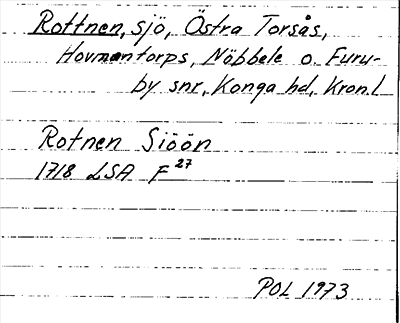 Rottnen, sjö, Östra Torsås,
Hovmantorps, Nöbbele o. Furu-
by snr, Konga hd, Kron.l
Rotnen Siöön
1718 LSA F27
POL 1973